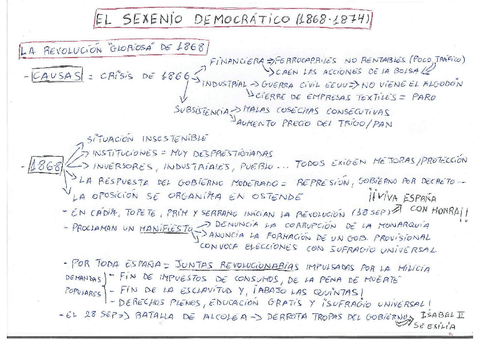 EL SEXENIO DEMOCRÁTICO (1868-1874)
LA REVOLUCIÓN "GLORIOSA" DE 1868
FINANCIERA ⇒ FERROCARRILES NO RENTABLES (POCO TRÁFICO)
CAEN LAS ACCIONES DE LA BOLSA
- CAUSAS = CRISIS DE 1866
INDUSTRIAL → GUERRA CIVIL EEUU ⇒ NO VIENE EL ALGODÓN
CIERRE DE EMPRESAS TEXTILES = PARO
SUBSISTENCIA → MALAS COSECHAS CONSECUTIVAS
AUMENTO PREGO DEL TRIGO/PAN
SITUACIÓN INSOSTENIBLE
INSTITUCIONES = MUY DESPRESTIGIADAS
- 1868
INVERSORES, INDUSTRIALES, PUEBLO... TODOS EXIGEN MEJORAS/PROTECCIÓN
LA RESPUESTA DEL GOBIERNO MODERADO = REPRESIÓN, GOBIERNO POR DECRETO...
LA OPOSICIÓN SE ORGANIZA EN OSTENDE
¡¡VIVA ESPAÑA CON HONRA!!
- EN CÁDIZ, TOPETE, PRIM Y SERRANO INICIAN LA REVOLUCIÓN (18 SEP)
- PROCLAMAN UN MANIFIESTO → DENUNCIA LA CORRUPCIÓN DE LA MONARQUÍA
ANUNCIA LA FORMACIÓN DE UN GOB. PROVISIONAL
CONVOCA ELECCIONES CON SUFRAGIO UNIVERSAL
- POR TODA ESPAÑA = JUNTAS REVOLUCIONARIAS IMPULSADAS POR LA MILICIA
DEMANDAS POPULARES
- FIN DE IMPUESTOS DE CONSUMOS, DE LA PENA DE MUERTE
- FIN DE LA ESCLAVITUD Y, ¡ABAJO LAS QUINTAS!
- DERECHOS PLENOS, EDUCACIÓN GRATIS Y ¡SUFRAGIO UNIVERSAL!
- EL 28 SEP ⇒ BATALLA DE ALCOLEA → DERROTA TROPAS DEL GOBIERNO
ISABEL II
SE EXILIA